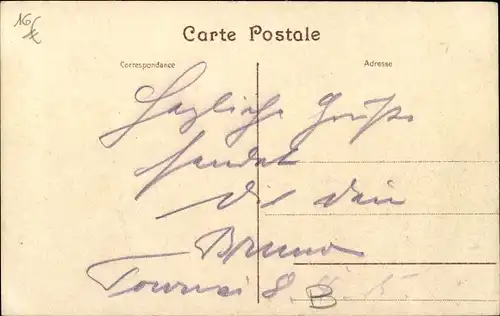 16/X
Carte Postale
Correspondance
Adresse
Herzliche Grüße
sendet
Dir Dein
Bruno
Tournai 8.
B